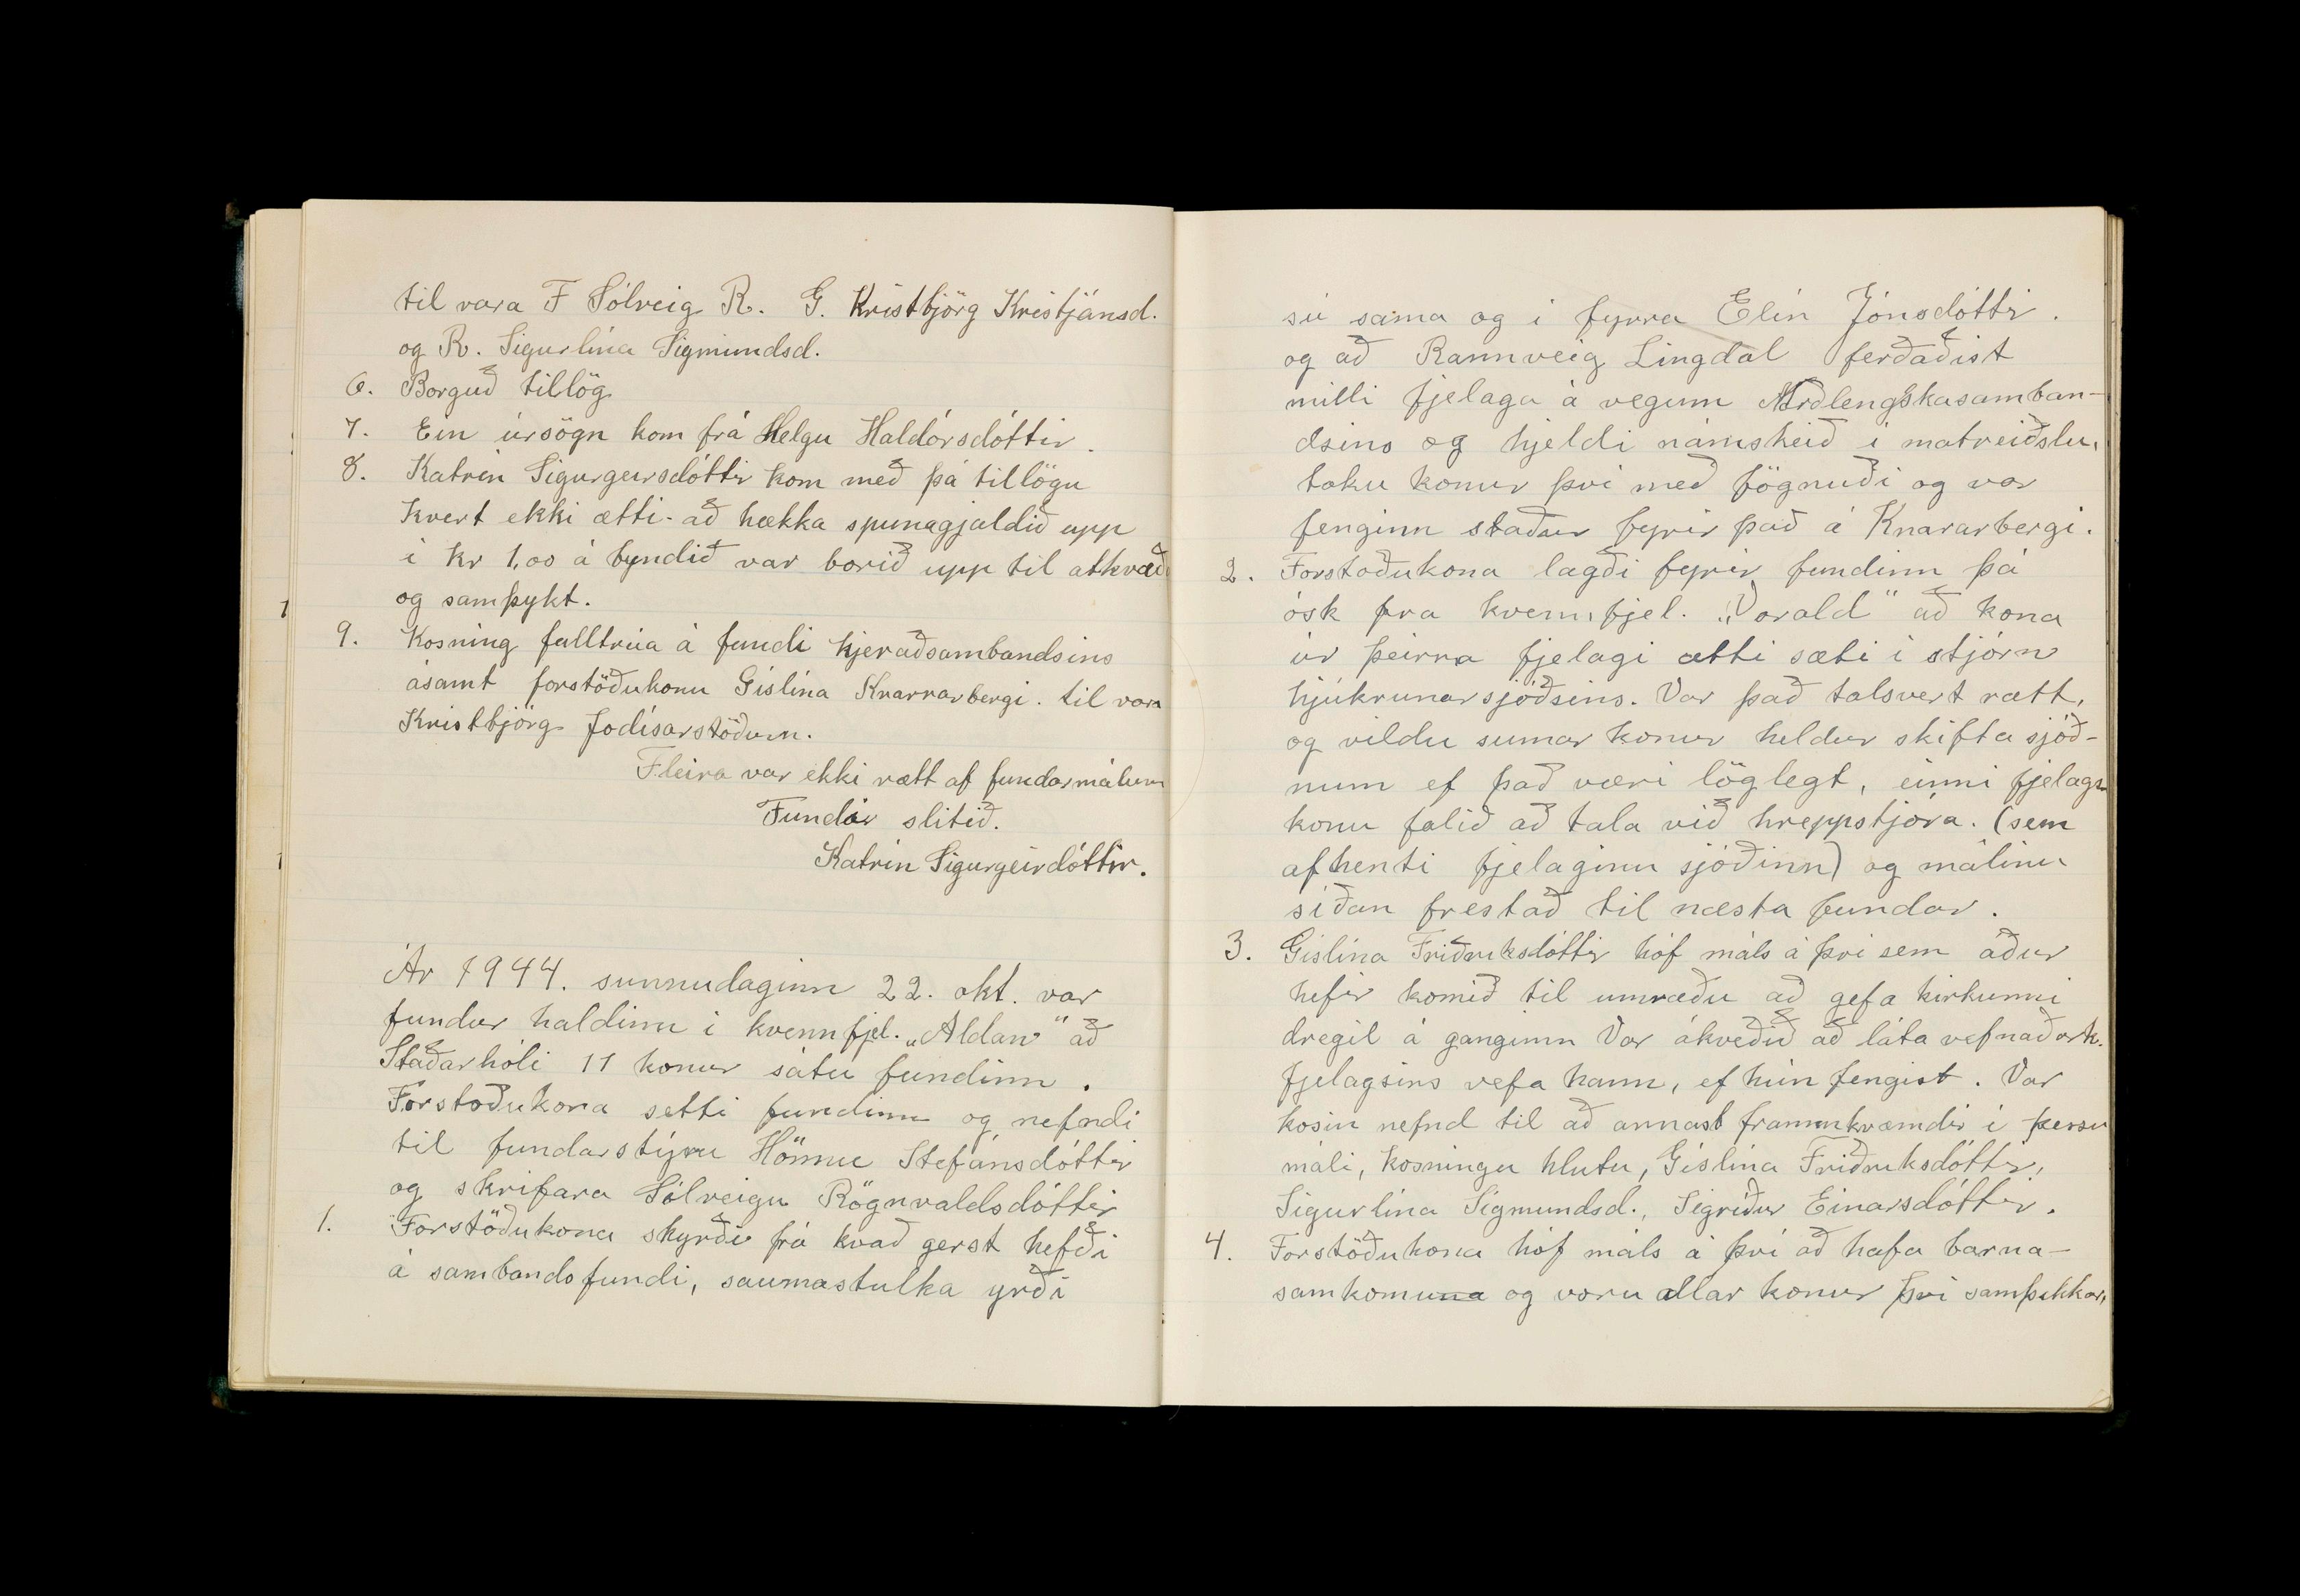 til vara F Sólveig R. G. Kristbjörg Kristjánsd.
og R. Sigurlína Sigmundsd.
6. Borguð tillög
7. Ein úrsögn kom frá Helgu Haldórsdóttir.
8. Katrín Sigurgeirsdóttir kom með þá tillögu
hvert ekki ætti að hækka spunagjaldið upp
í kr 1,00 á byndið var borið upp til atkvæða
og samþykt.
9. Kosning fulltrúa á fundi hjeraðsambandsins
ásamt forstöðukonu Gíslína Knarrarbergi. til vara
Kristbjörg Jódísarstöðum.
Fleira var ekki rætt af fundarmálum
Fundir slitið.
Katrín Sigurgeirdóttir.
Ár 1944. sunnudaginn 22. okt. var
fundur haldinn í kvennfjel. „Aldan" að
Staðarhóli 11 konur sátu fundinn.
Forstoðukona setti fundinn og nefndi
til fundarstýru Hönnu Stefánsdóttir
og skrifara Sólveigu Rögnvaldsdóttir
1. Forstöðukona skyrði frá hvað gerst hefði
á sambandsfundi, saumastulka yrði
sú sama og í fyrra Elín Jónsdóttir.
og að Rannveig Lingdal ferðaðist
milli fjelaga á vegum Norðlengskasamban-
dsins og hjeldi námsheið í matreiðslu,
toku konur því með fögnuði og var
fenginn staður fyrir það á Knararbergi.
2. Forstoðukona lagði fyrir fundinn þá
ósk fra kvennfjel. „Vorald" að kona
úr þeirra fjelagi ætti sæti í stjórn
hjúkrunarsjóðsins. Var það talsvert rætt,
og vildu sumar konur heldur skifta sjóð-
num ef það væri löglegt, einni fjelags
konu falið að tala við hreppstjóra. (sem
afhenti fjelaginu sjóðinn) og málinu
síðan frestað til næsta fundar.
3. Gíslína Friðriksdóttir hóf máls á því sem áður
hefir komið til umræðu að gefa kirkunni
dregil á ganginn Var ákveðið að láta vefnaðark.
fjelagsins vefa hann, ef hún fengist. Var
kosin nefnd til að annast frammkvæmdir í þessu
máli, kosningu hlutu, Gíslína Friðriksdóttir,
Sigurlína Sigmundsd., Sigríður Einarsdóttir.
4. Forstöðukona hóf máls á því að hafa barna-
samkomuna og voru allar konur því samþikkar,